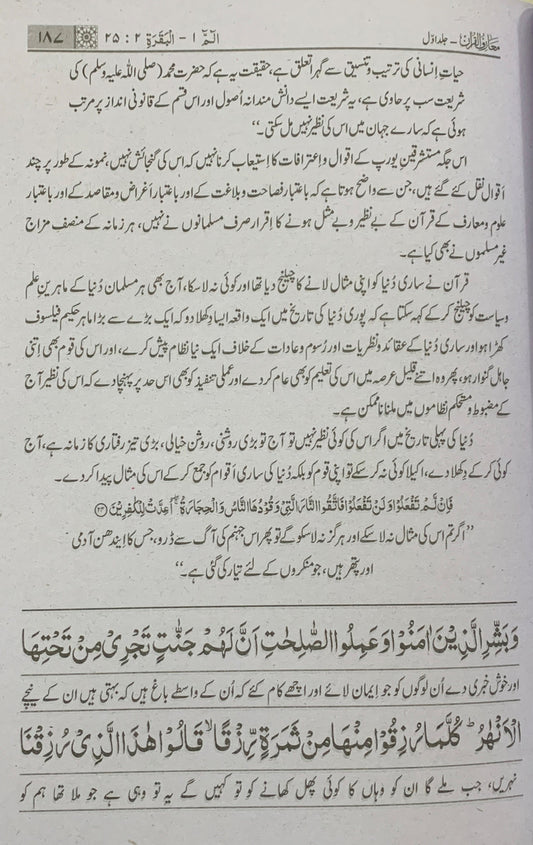 معارف القرآن - جلد اوّل الٓمّٓ ۱ - الْبَقَرَةِ ۲ : ۲۵ ۱۸۷
حیاتِ انسانی کی ترتیب و تنسیق سے گہرا تعلق ہے، حقیقت یہ ہے کہ حضرت محمد (صلی اللہ علیہ وسلم) کی
شریعت سب پر حاوی ہے، یہ شریعت ایسے دانش مندانہ اُصول اور اس قسم کے قانونی انداز پر مرتب
ہوئی ہے کہ سارے جہان میں اس کی نظیر نہیں مل سکتی۔‘‘
اس جگہ مستشرقینِ یورپ کے اقوال و اعترافات کا اِستیعاب کرنا نہیں کہ اس کی گنجائش نہیں، نمونہ کے طور پر چند
اَقوال نقل کئے گئے ہیں، جن سے واضح ہوتا ہے کہ باعتبار فصاحت و بلاغت کے اور باعتبار اَغراض و مقاصد کے اور باعتبار
علوم و معارف کے قرآن کے بے نظیر و بے مثل ہونے کا اِقرار صرف مسلمانوں نے نہیں، ہر زمانہ کے منصف مزاج
غیر مسلموں نے بھی کیا ہے۔
قرآن نے ساری دُنیا کو اپنی مثال لانے کا چیلنج دیا تھا اور کوئی نہ لا سکا، آج بھی ہر مسلمان دُنیا کے ماہرینِ علم
و سیاست کو چیلنج کر کے کہہ سکتا ہے کہ پوری دُنیا کی تاریخ میں ایک واقعہ ایسا دِکھلا دو کہ ایک بڑے سے بڑا ماہر حکیم فیلسوف
کھڑا ہو اور ساری دُنیا کے عقائد و نظریات اور رُسوم و عادات کے خلاف ایک نیا نظام پیش کرے، اور اس کی قوم بھی اِتنی
جاہل گنوار ہو، پھر وہ اتنے قلیل عرصہ میں اس کی تعلیم کو بھی عام کر دے اور عملی تنفیذ کو بھی اس حد پر پہنچا دے کہ اس کی نظیر آج
کے مضبوط و مستحکم نظاموں میں ملنا ناممکن ہے۔
دُنیا کی پہلی تاریخ میں اگر اس کی کوئی نظیر نہیں تو آج تو بڑی روشنی، روشن خیالی، بڑی تیز رفتاری کا زمانہ ہے، آج
کوئی کر کے دِکھلا دے، اکیلا کوئی نہ کر سکے تو اپنی قوم کو بلکہ دُنیا کی ساری اَقوام کو جمع کر کے اس کی مثال پیدا کر دے۔
فَاِنْ لَّمْ تَفْعَلُوْا وَلَنْ تَفْعَلُوْا فَاتَّقُوا النَّارَ الَّتِيْ وَقُوْدُهَا النَّاسُ وَالْحِجَارَةُ ۖ اُعِدَّتْ لِلْكٰفِرِيْنَ ﴿۲۴﴾
’’اگر تم اس کی مثال نہ لا سکے اور ہرگز نہ لا سکو گے تو پھر اس جہنم کی آگ سے ڈرو، جس کا اِیندھن آدمی
اور پتھر ہیں، جو منکروں کے لئے تیار کی گئی ہے۔‘‘
وَبَشِّرِ الَّذِيْنَ اٰمَنُوْا وَعَمِلُوا الصّٰلِحٰتِ اَنَّ لَهُمْ جَنّٰتٍ تَجْرِيْ مِنْ تَحْتِهَا
اور خوش خبری دے اُن لوگوں کو جو اِیمان لائے اور اچھے کام کئے کہ اُن کے واسطے باغ ہیں کہ بہتی ہیں ان کے نیچے
الْاَنْهٰرُ ؕ كُلَّمَا رُزِقُوْا مِنْهَا مِنْ ثَمَرَةٍ رِّزْقًا ۙ قَالُوْا هٰذَا الَّذِيْ رُزِقْنَا
نہریں، جب ملے گا ان کو وہاں کا کوئی پھل کھانے کو تو کہیں گے یہ تو وہی ہے جو ملا تھا ہم کو